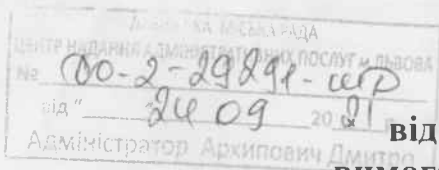 ЛЬВІВСЬКА МІСЬКА РАДА
ЦЕНТР НАДАННЯ АДМІНІСТРАТИВНИХ ПОСЛУГ м. ЛЬВОВА
№ 00-2-29291-
від " 24 09 20 21
Адміністратор Архипович Дмитро
від